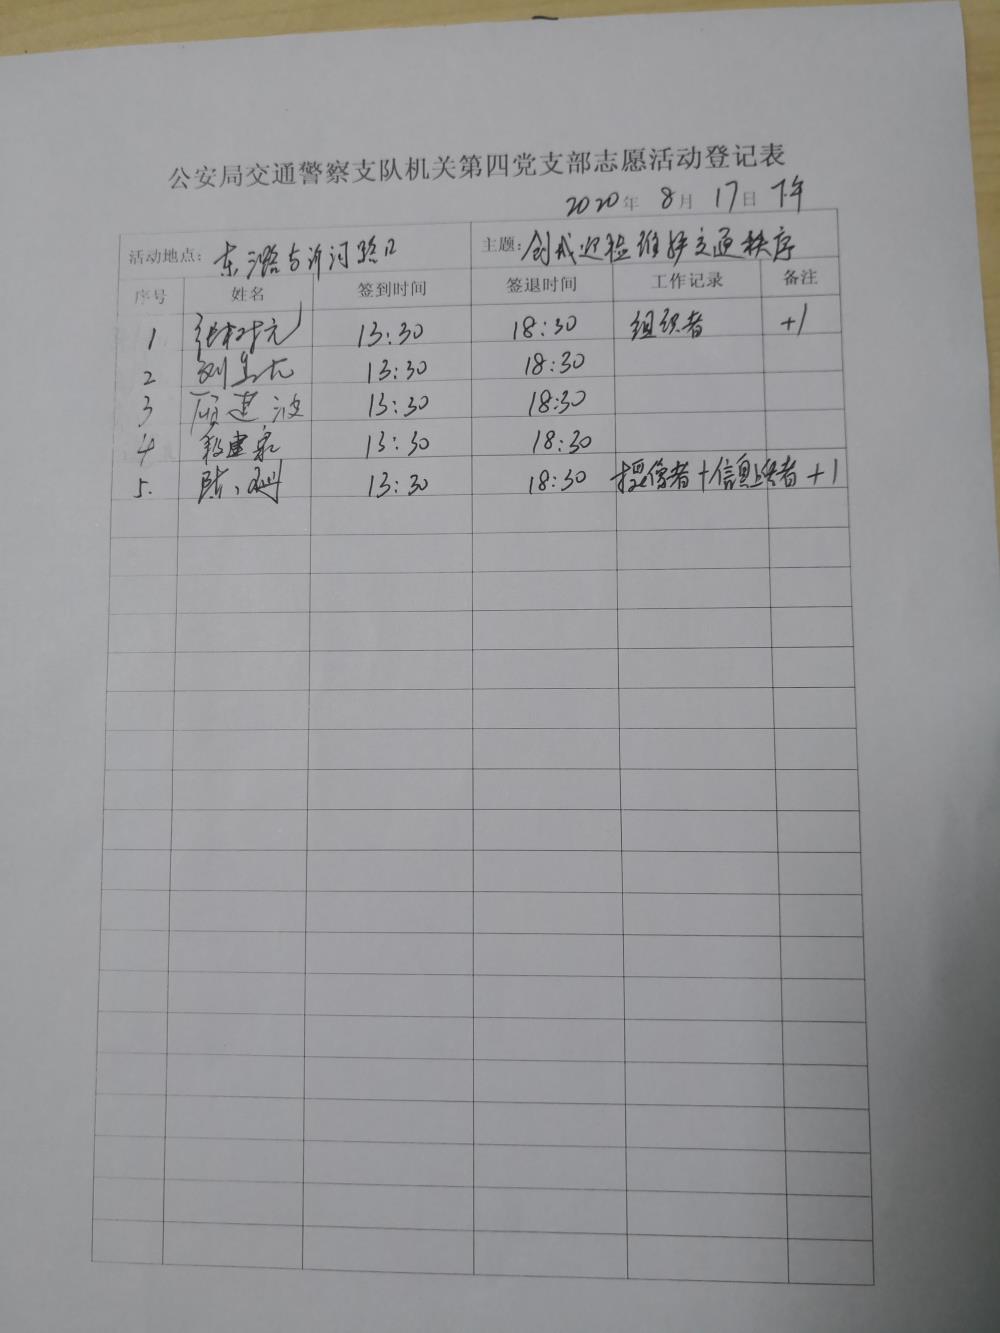 公安局交通警察支队机关第四党支部志愿活动登记表
2020年 8月 17日 下午
活动地点: 东三路与许河路口 主题: 创城迎检维护交通秩序
序号 姓名 签到时间 签退时间 工作记录 备注
1 13:30 18:30 组织者 +1
2 13:30 18:30
3 建波 13:30 18:30
4 建泉 13:30 18:30
5. 陈 13:30 18:30 摄像者+信息上传者 +1